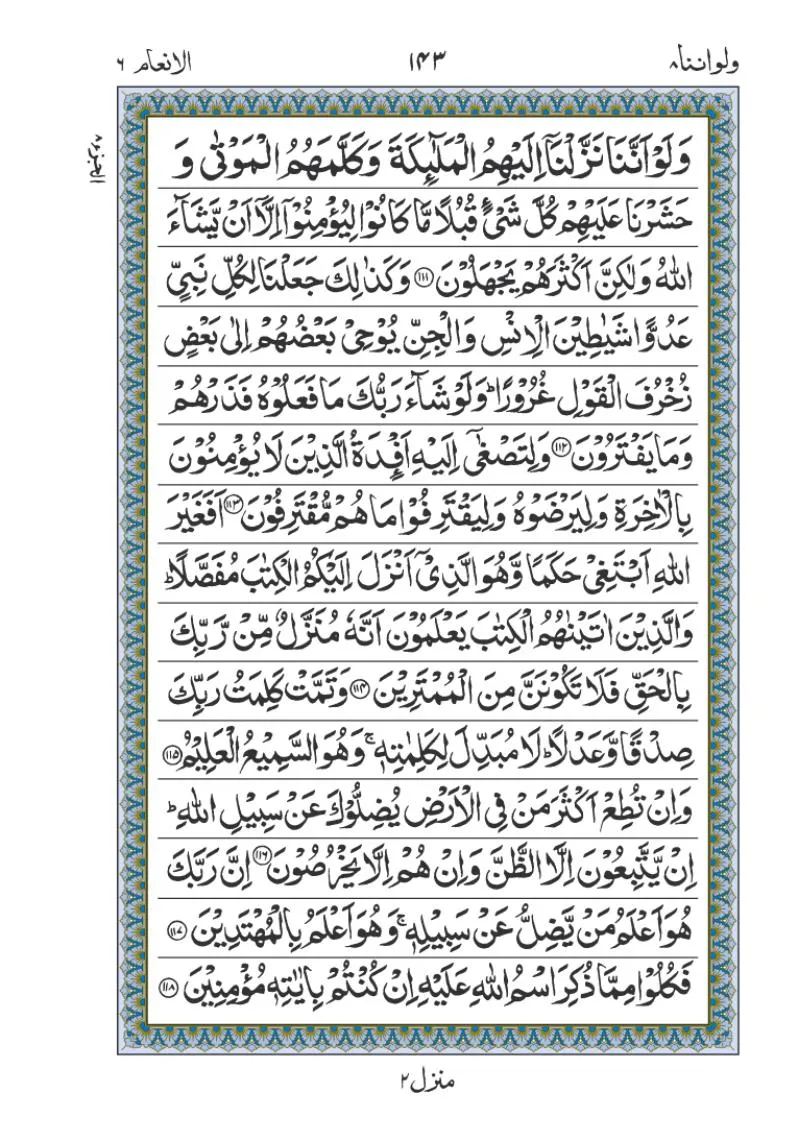 ولواننا ۸ ۱۴۳ الانعام ۶
الجزء ۸
وَلَوْ اَنَّنَا نَزَّلْنَاۤ اِلَيْهِمُ الْمَلٰٓئِكَةَ وَكَلَّمَهُمُ الْمَوْتٰى وَ
حَشَرْنَا عَلَيْهِمْ كُلَّ شَىْءٍ قُبُلًا مَّا كَانُوْا لِيُؤْمِنُوْۤا اِلَّاۤ اَنْ يَّشَآءَ
اللّٰهُ وَلٰكِنَّ اَكْثَرَهُمْ يَجْهَلُوْنَ ﴿۱۱۱﴾ وَكَذٰلِكَ جَعَلْنَا لِكُلِّ نَبِىٍّ
عَدُوًّا شَيٰطِيْنَ الْاِنْسِ وَالْجِنِّ يُوْحِىْ بَعْضُهُمْ اِلٰى بَعْضٍ
زُخْرُفَ الْقَوْلِ غُرُوْرًا ؕ وَلَوْ شَآءَ رَبُّكَ مَا فَعَلُوْهُ فَذَرْهُمْ
وَمَا يَفْتَرُوْنَ ﴿۱۱۲﴾ وَلِتَصْغٰٓى اِلَيْهِ اَفْـِٕدَةُ الَّذِيْنَ لَا يُؤْمِنُوْنَ
بِالْاٰخِرَةِ وَلِيَرْضَوْهُ وَلِيَقْتَرِفُوْا مَا هُمْ مُّقْتَرِفُوْنَ ﴿۱۱۳﴾ اَفَغَيْرَ
اللّٰهِ اَبْتَغِىْ حَكَمًا وَّهُوَ الَّذِىْۤ اَنْزَلَ اِلَيْكُمُ الْكِتٰبَ مُفَصَّلًا ؕ
وَالَّذِيْنَ اٰتَيْنٰهُمُ الْكِتٰبَ يَعْلَمُوْنَ اَنَّهٗ مُنَزَّلٌ مِّنْ رَّبِّكَ
بِالْحَقِّ فَلَا تَكُوْنَنَّ مِنَ الْمُمْتَرِيْنَ ﴿۱۱۴﴾ وَتَمَّتْ كَلِمَتُ رَبِّكَ
صِدْقًا وَّعَدْلًا ؕ لَا مُبَدِّلَ لِكَلِمٰتِهٖ ۚ وَهُوَ السَّمِيْعُ الْعَلِيْمُ ﴿۱۱۵﴾
وَاِنْ تُطِعْ اَكْثَرَ مَنْ فِى الْاَرْضِ يُضِلُّوْكَ عَنْ سَبِيْلِ اللّٰهِ ؕ
اِنْ يَّتَّبِعُوْنَ اِلَّا الظَّنَّ وَاِنْ هُمْ اِلَّا يَخْرُصُوْنَ ﴿۱۱۶﴾ اِنَّ رَبَّكَ
هُوَ اَعْلَمُ مَنْ يَّضِلُّ عَنْ سَبِيْلِهٖ ۚ وَهُوَ اَعْلَمُ بِالْمُهْتَدِيْنَ ﴿۱۱۷﴾
فَكُلُوْا مِمَّا ذُكِرَ اسْمُ اللّٰهِ عَلَيْهِ اِنْ كُنْتُمْ بِاٰيٰتِهٖ مُؤْمِنِيْنَ ﴿۱۱۸﴾
منزل ۲